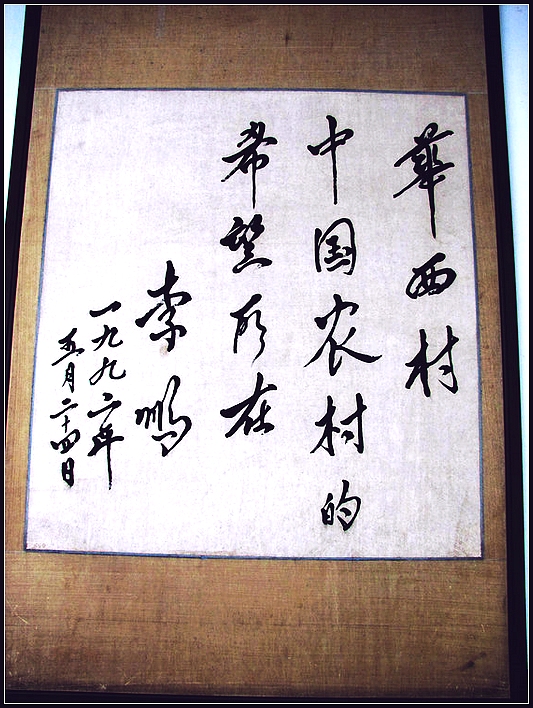 華西村
中国农村的
希望所在
李鹏
一九九六年
五月二十四日